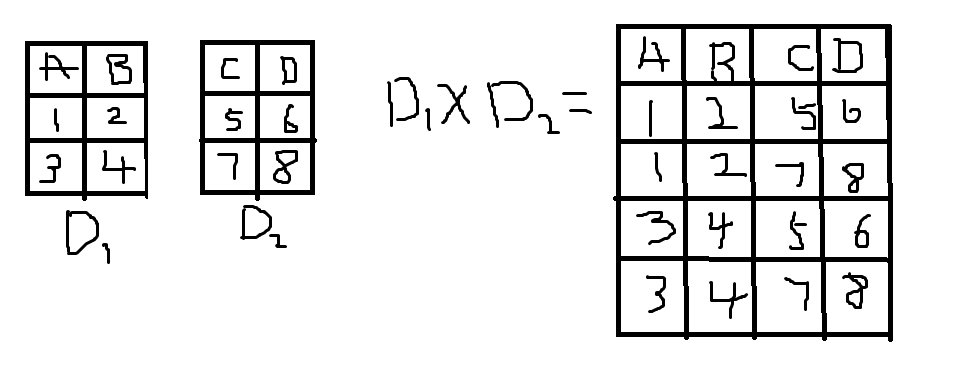 A B
1 2
3 4
D₁
C D
5 6
7 8
D₂
D₁ X D₂ =
A B C D
1 2 5 6
1 2 7 8
3 4 5 6
3 4 7 8